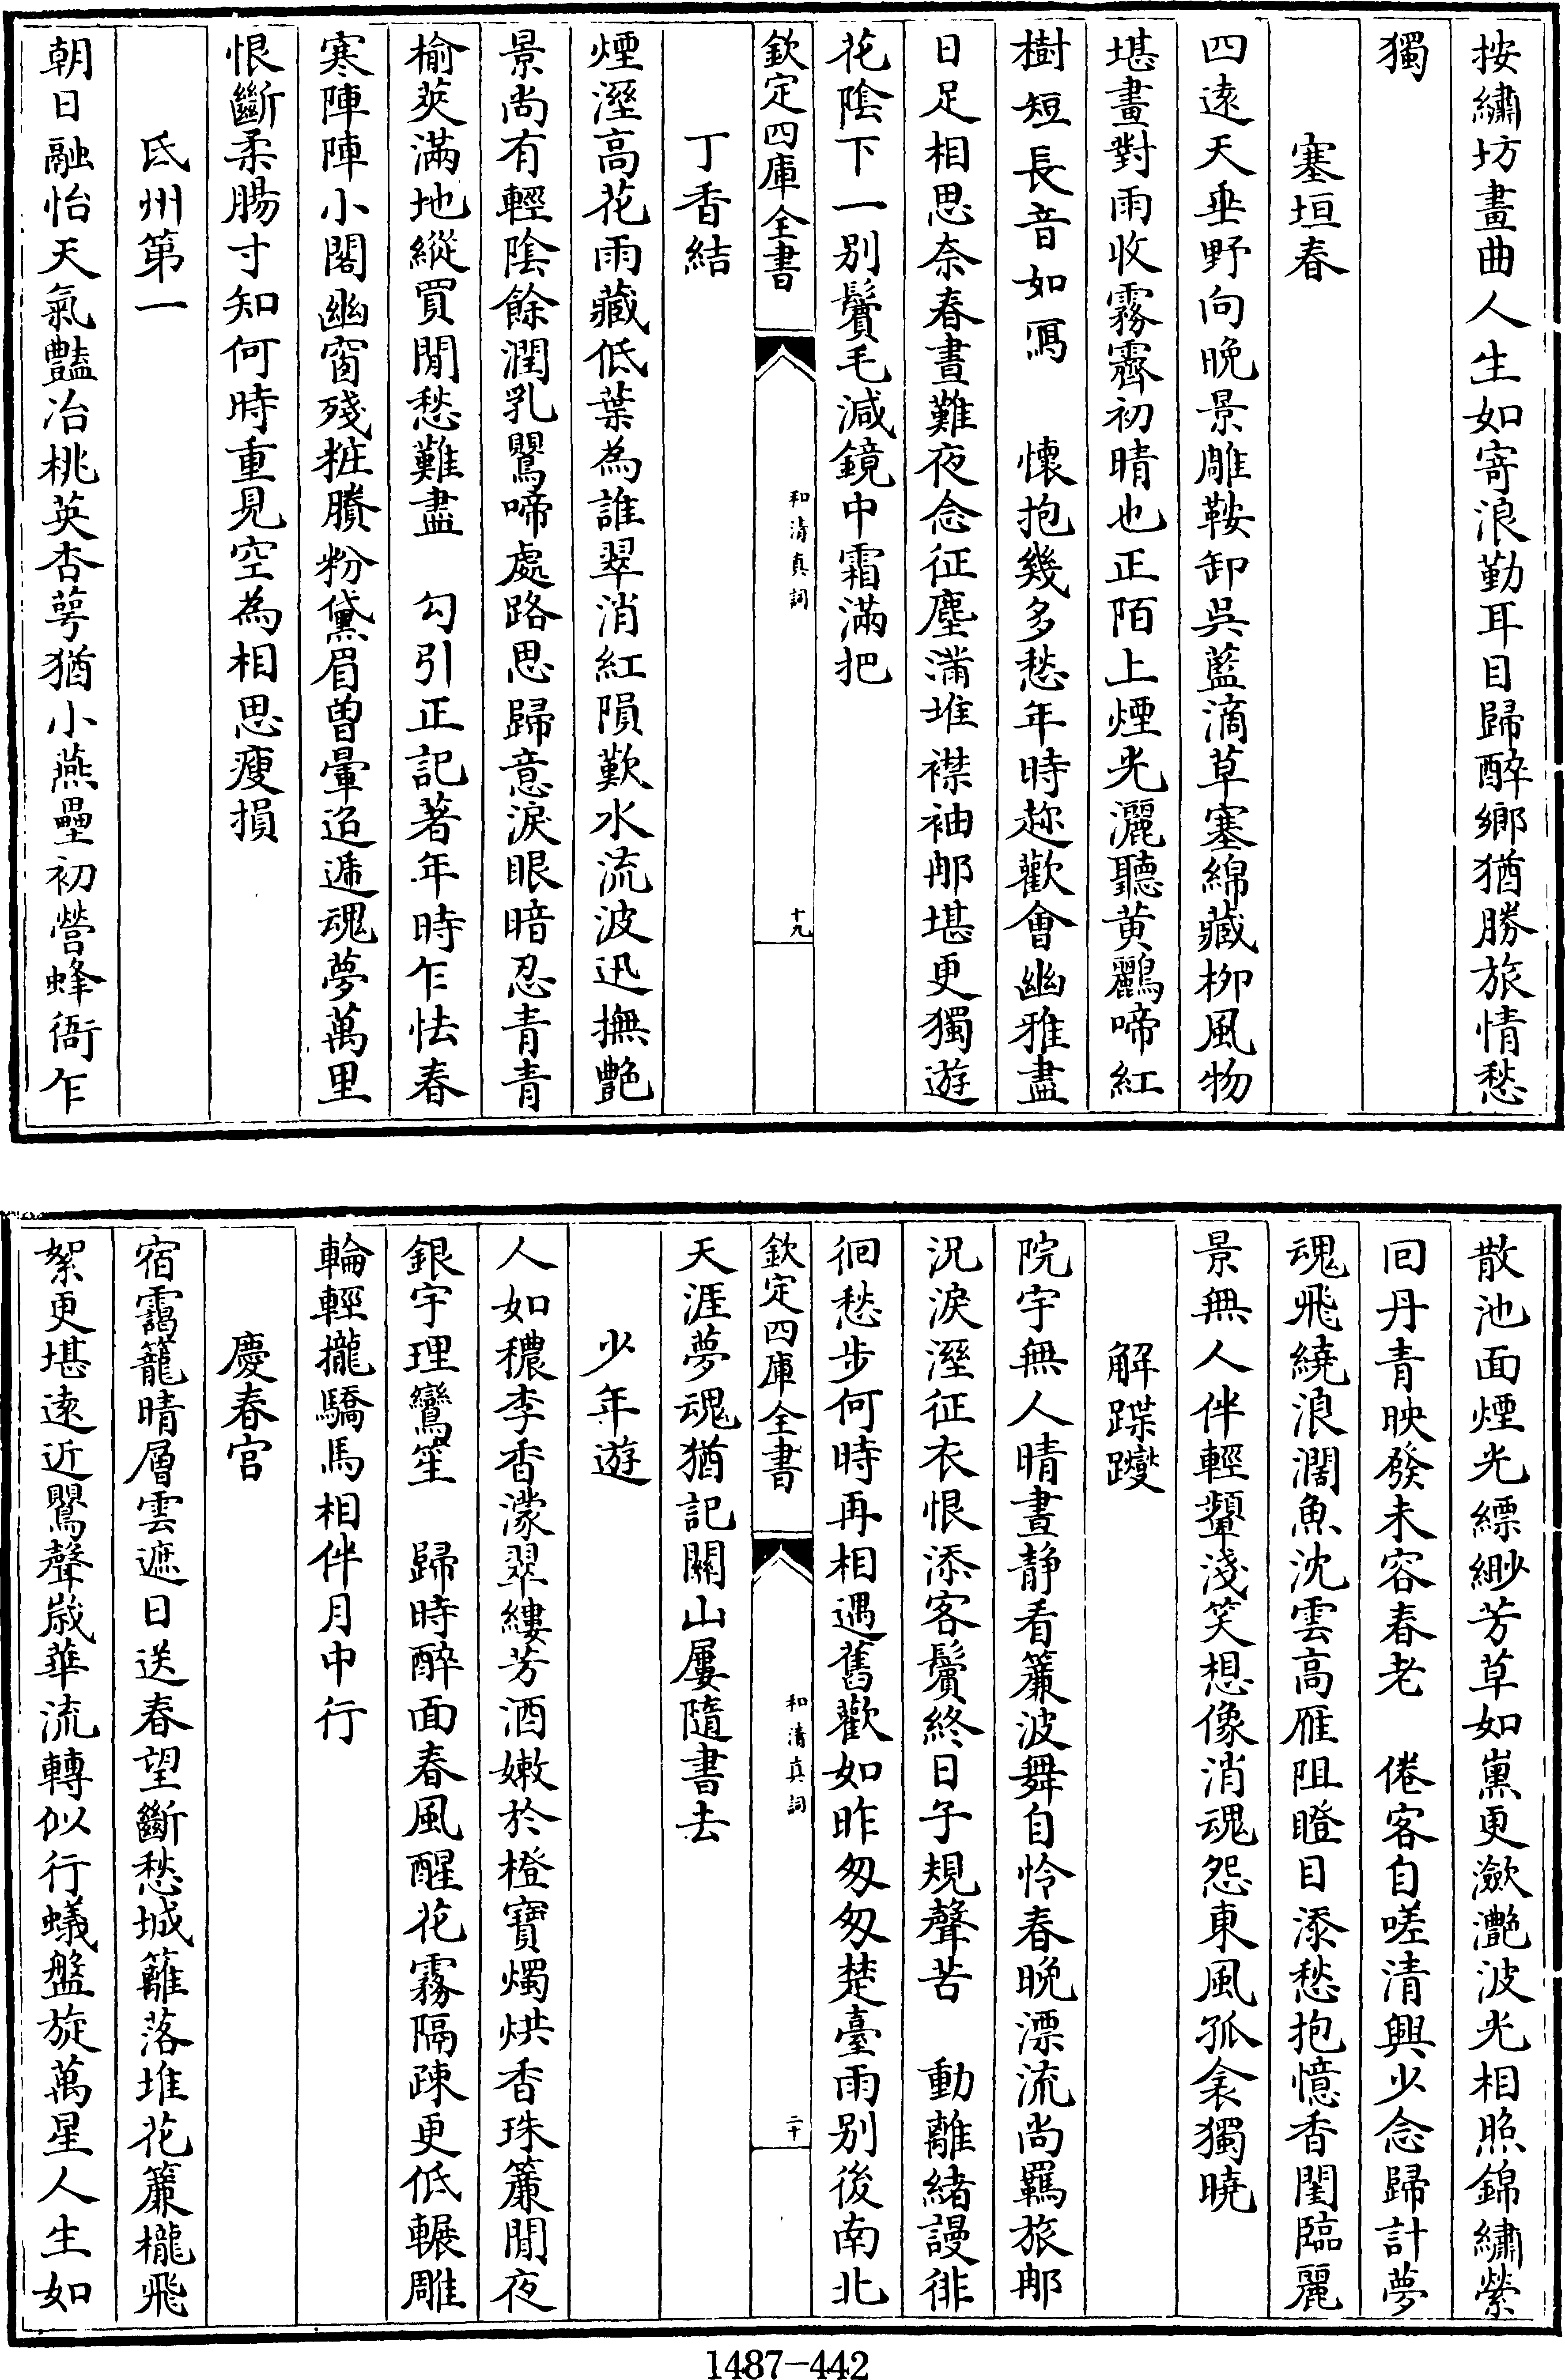 按繡坊畫曲人生如寄浪勤耳目歸醉鄉猶勝旅情愁
獨
塞垣春
四遠天垂野向晚景雕鞍卸吳藍滴草塞綿藏柳風物
堪畫對雨收霧霽初晴也正陌上煙光灑聽黄鸝啼紅
樹短長音如寫　懷抱幾多愁年時趂歡會幽雅盡
日足相思奈春晝難夜念征塵滿堆襟袖那堪更獨遊
花陰下一别鬢毛減鏡中霜滿把
欽定四庫全書
和清真詞
十九
丁香結
煙溼高花雨藏低葉為誰翠消紅隕歎水流波迅撫艶
景尚有輕陰餘潤乳鸎啼處路思歸意淚眼暗忍青青
榆莢滿地縱買閒愁難盡　勾引正記著年時乍怯春
寒陣陣小閣幽窗殘粧賸粉黛眉曽暈迢遞魂夢萬里
恨斷柔腸寸知何時重見空為相思瘦損
氐州第一
朝日融怡天氣豔冶桃英杏萼猶小燕壘初營蜂衙乍
散池面煙光縹緲芳草如薰更瀲灩波光相照錦繡縈
回丹青映發未容春老　倦客自嗟清興少念歸計夢
魂飛繞浪濶魚沈雲高雁阻瞪目添愁抱憶香閨臨麗
景無人伴輕顰淺笑想像消魂怨東風孤衾獨曉
解蹀躞
院宇無人晴晝静看簾波舞自憐春晚漂流尚羈旅那
況淚溼征衣恨添客鬢終日子規聲苦　動離緒謾徘
徊愁步何時再相遇舊歡如昨匆匆楚臺雨别後南北
欽定四庫全書
和清真詞
二十
天涯夢魂猶記關山屢隨書去
少年遊
人如穠李香濛翠縷芳酒嫩於橙寶燭烘香珠簾閒夜
銀宇理鸞笙　歸時醉面春風醒花霧隔疎更低輾雕
輪輕攏驕馬相伴月中行
慶春宫
宿靄籠晴層雲遮日送春望斷愁城籬落堆花簾櫳飛
絮更堪遠近鸎聲嵗華流轉似行蟻盤旋萬星人生如
1487-442